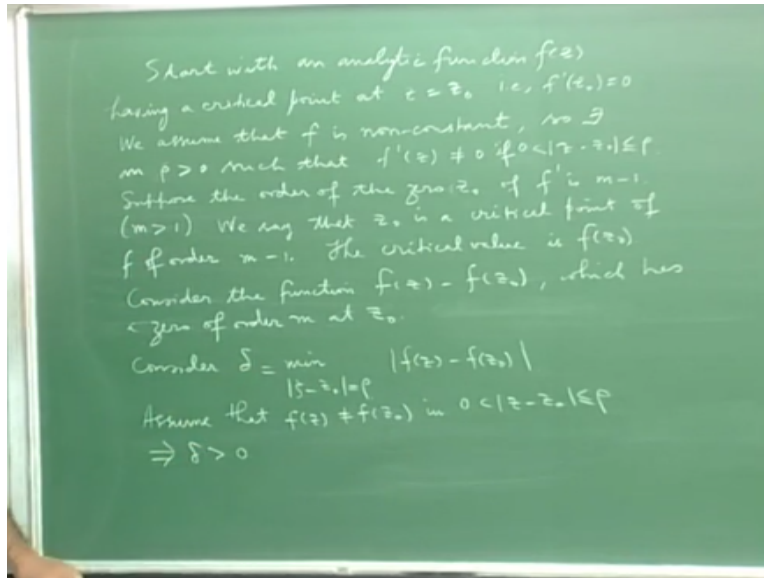 Start with an analytic function f(z)
having a critical point at z = z₀ i.e, f'(z₀)=0
We assume that f is non-constant, so ∃
an ρ>0 such that f'(z) ≠ 0 if 0<|z-z₀|≤ρ.
Suppose the order of the zero z₀ of f' is m-1.
(m>1) We say that z₀ is a critical point of
f of order m-1. The critical value is f(z₀)
Consider the function f(z) - f(z₀), which has
a zero of order m at z₀.
Consider δ = min |f(z) - f(z₀)|
|ζ-z₀|=ρ
Assume that f(z) ≠ f(z₀) in 0<|z-z₀|≤ρ
⇒ δ > 0